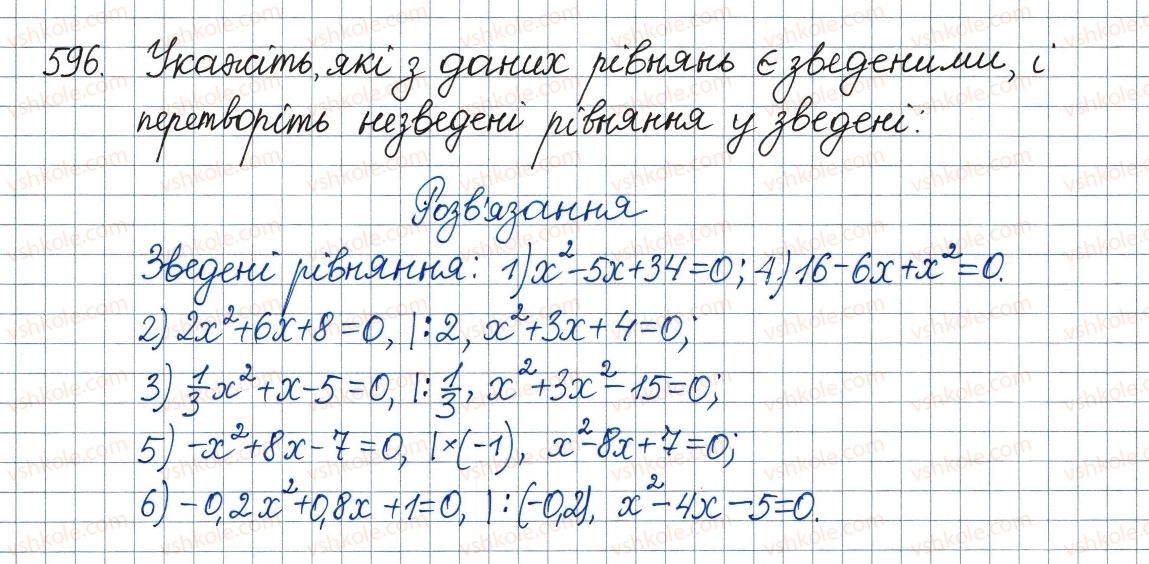 596. Укажіть, які з даних рівнянь є зведеними, і
перетворіть незведені рівняння у зведені:
Розв'язання
Зведені рівняння: 1) x²-5x+34=0; 4) 16-6x+x²=0.
2) 2x²+6x+8=0, |:2, x²+3x+4=0;
3) 1/3 x²+x-5=0, |:1/3, x²+3x²-15=0;
5) -x²+8x-7=0, |×(-1), x²-8x+7=0;
6) -0,2x²+0,8x+1=0, |:(-0,2), x²-4x-5=0.